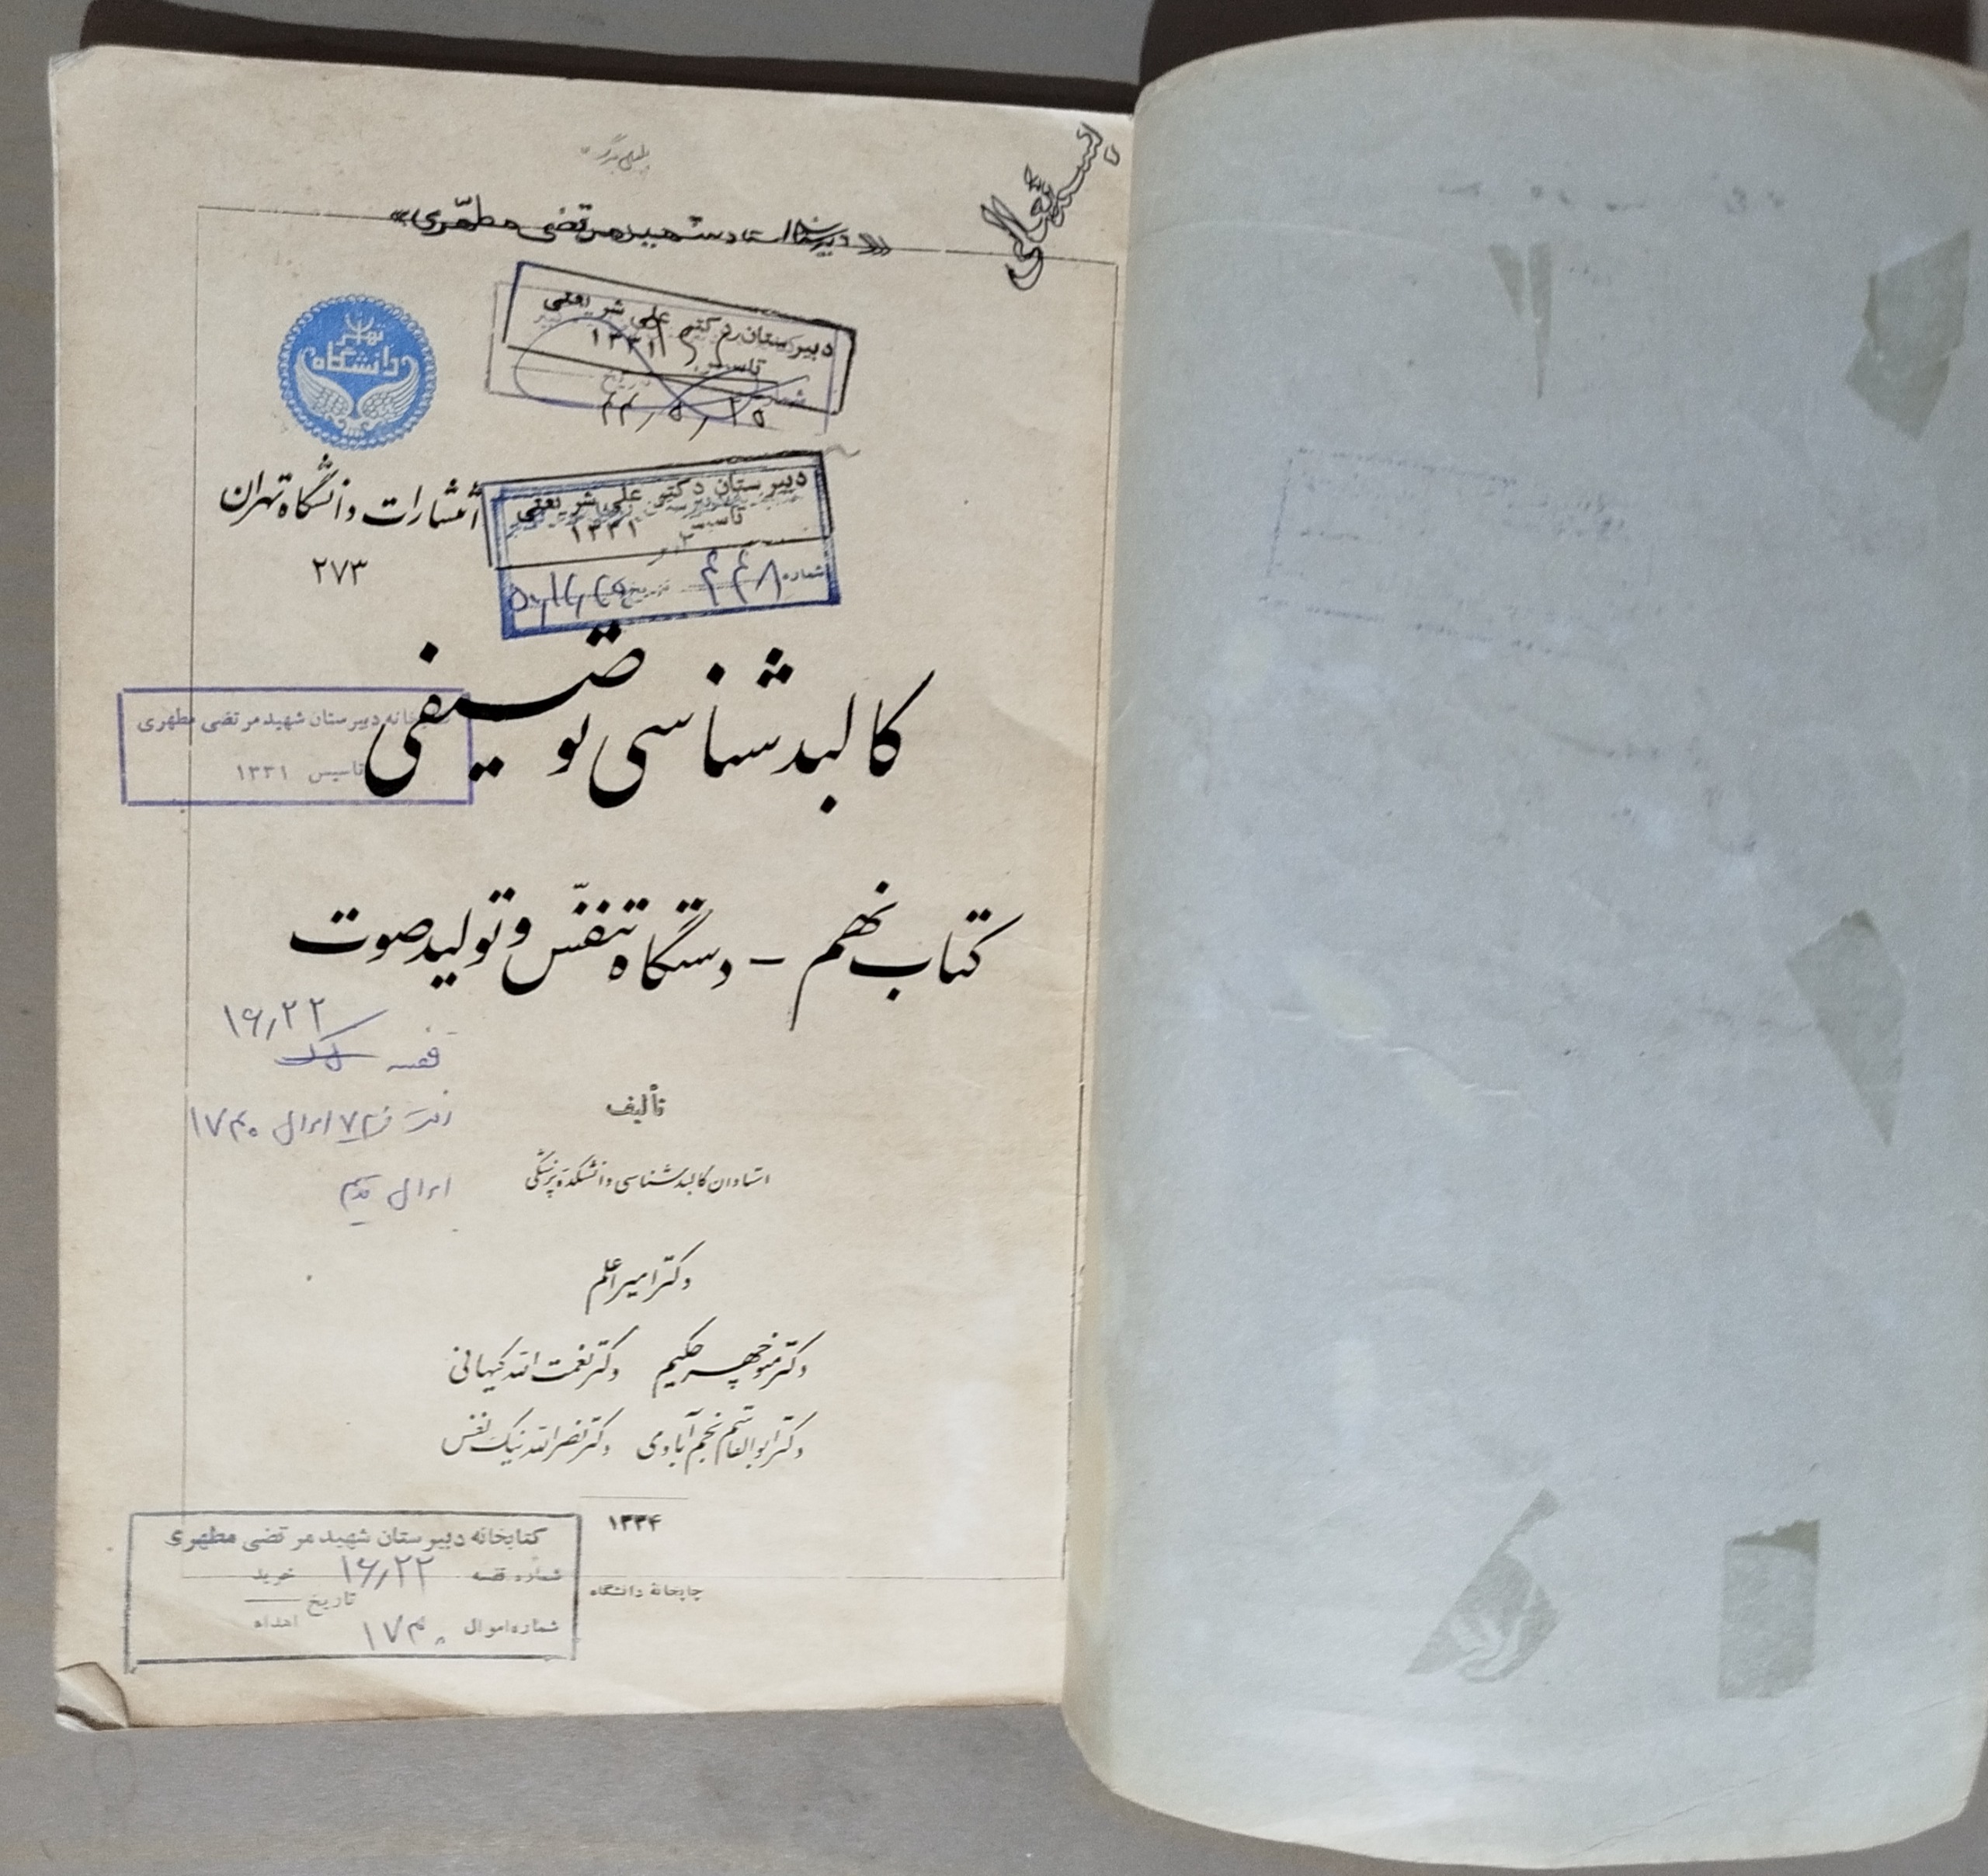 بسمه تعالی
«دبیرستان استاد شهید مرتضی مطهّری»
تهران
دانشگاه
دبیرستان دکتر علی شریعتی
تاسیس ۱۳۳۱
انتشارات دانشگاه تهران
۲۷۳
دبیرستان دکتر علی شریعتی
تاسیس ۱۳۳۱
شماره
تاریخ
کالبد شناسی توصیفی
کتابخانه دبیرستان شهید مرتضی مطهری
تاسیس ۱۳۳۱
کتاب نهم – دستگاه تنفّس و تولید صوت
۱۶٫۲۲
قفسه
اموال ۱۷۴۰
اموال قدیم
تألیف
استادان کالبد شناسی دانشکدهٔ پزشکی
دکتر امیر اعلم
دکتر منوچهر حکیم دکتر نعمت الله کیهانی
دکتر ابوالقاسم نجم آبادی دکتر نصرالله نیک نفس
۱۳۳۴
چاپخانهٔ دانشگاه
کتابخانه دبیرستان شهید مرتضی مطهری
شماره قفسه ۱۶٫۲۲ خرید
تاریخ
شماره اموال ۱۷۴۰ اهداء